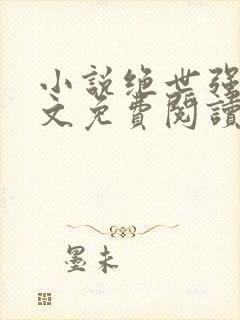 小説绝世强
文免費閱讀
墨未